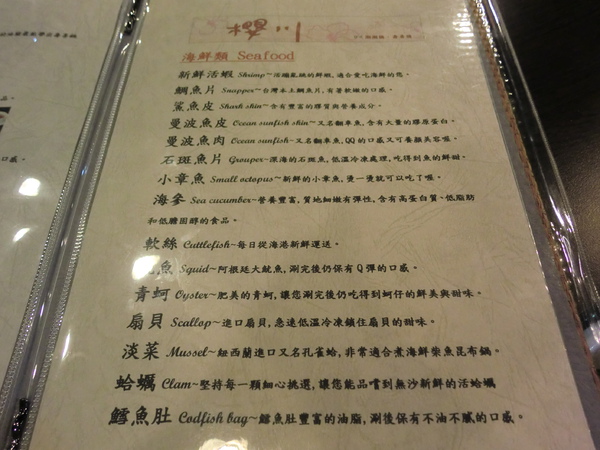 櫻川
海鮮類 Seafood
新鮮活蝦 Shrimp~活蹦亂跳的鮮蝦,適合愛吃海鮮的您。
鯛魚片 Snapper~台灣本土鯛魚片,有著軟嫩的口感。
鯊魚皮 Shark skin~含有豐富的膠質與營養成分。
曼波魚皮 Ocean sunfish skin~又名翻車魚,含有大量的膠原蛋白。
曼波魚肉 Ocean sunfish~又名翻車魚,QQ的口感又可養顏美容喔。
石斑魚片 Grouper~深海的石斑魚,低溫冷凍處理,吃得到魚的鮮甜。
小章魚 Small octopus~新鮮的小章魚,燙一燙就可以吃了喔。
海參 Sea cucumber~營養豐富,質地細嫩有彈性,含有高蛋白質、低脂肪
和低膽固醇的食品。
軟絲 Cuttlefish~每日從海港新鮮運送。
魚 Squid~阿根廷大魷魚,涮完後仍保有Q彈的口感。
青蚵 Oyster~肥美的青蚵,讓您涮完後仍吃得到蚵仔的鮮美與甜味。
扇貝 Scallop~進口扇貝,急速低溫冷凍鎖住扇貝的甜味。
淡菜 Mussel~紐西蘭進口又名孔雀蛤,非常適合煮海鮮柴魚昆布鍋。
蛤蠣 Clam~堅持每一顆細心挑選,讓您能品嚐到無沙新鮮的活蛤蠣
鱈魚肚 Codfish bag~鱈魚肚豐富的油脂,涮後保有不油不膩的口感。